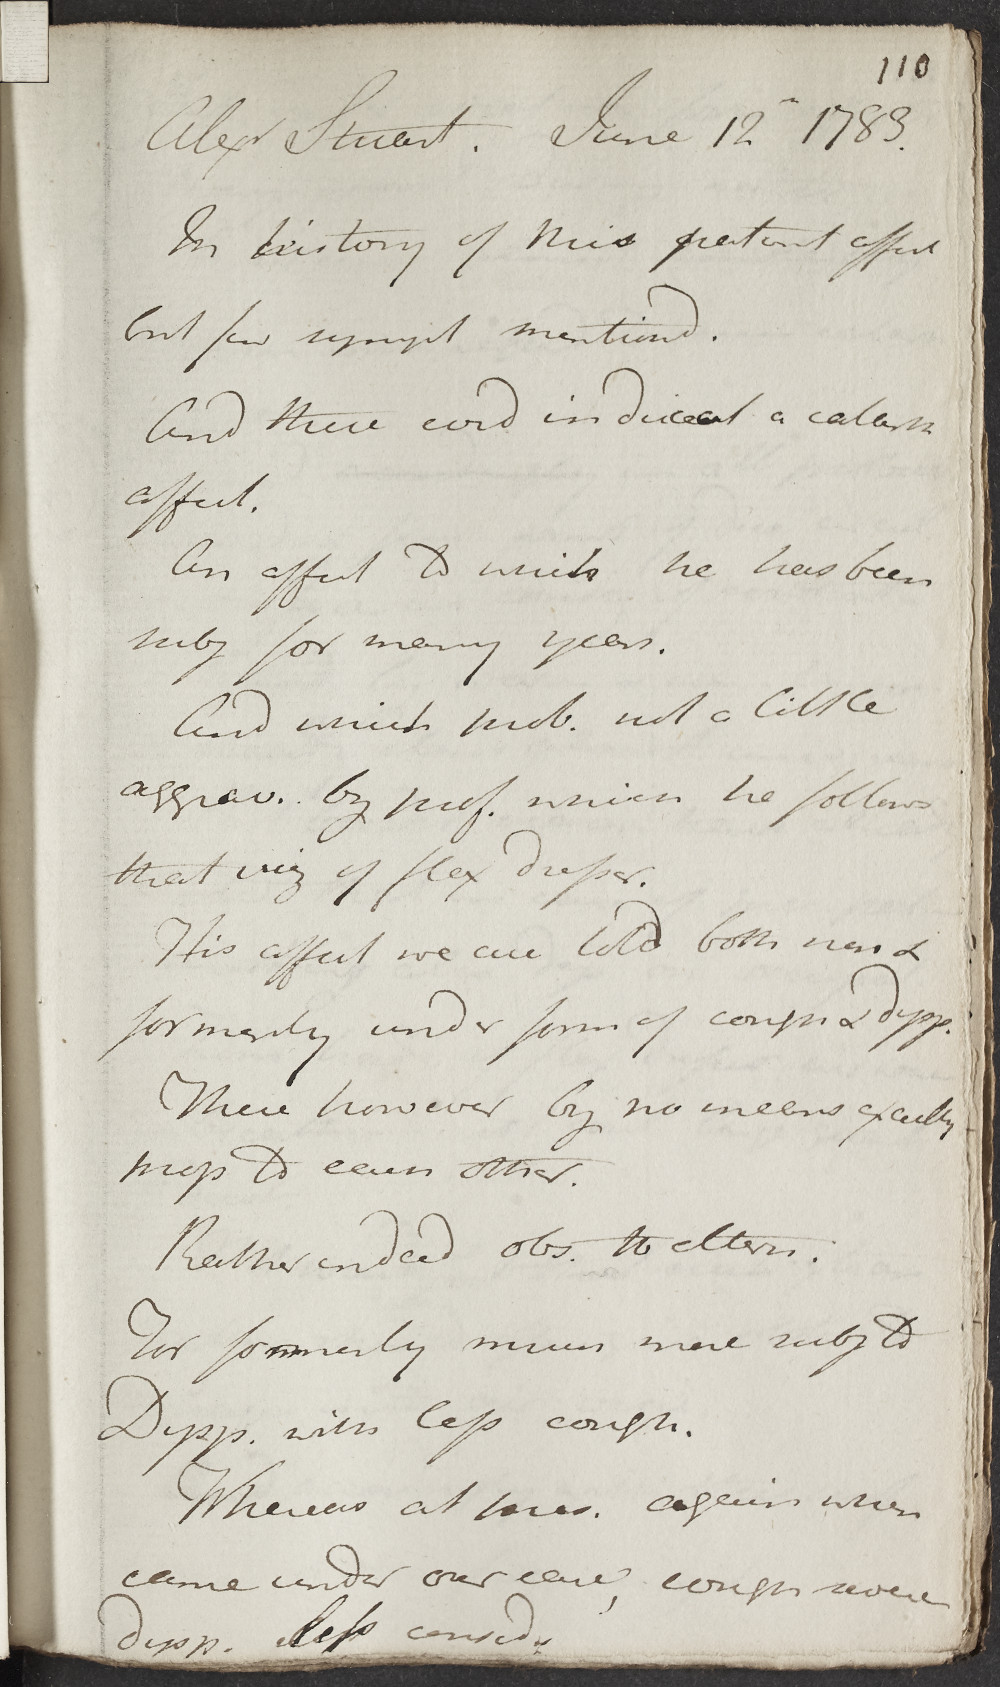 110
Alexr Stuart. June 12th 1783.
In history of this patient affect
but few sympt mentiond.
And these coud indicat a catarrh
affect.
An affect to which he has been
subj for many years.
And which prob. not a little
aggrav. by prof. which he follows
that viz of flax dresser.
His affect we are told both now &
formerly under form of cough & dysp.
These however by no means exactly
prop to each other.
Rather indeed obs. to altern.
For formerly much more subj to
Dysp. with less cough.
Whereas at pres. again when
came under our care, cough severe
dysp. less consid.